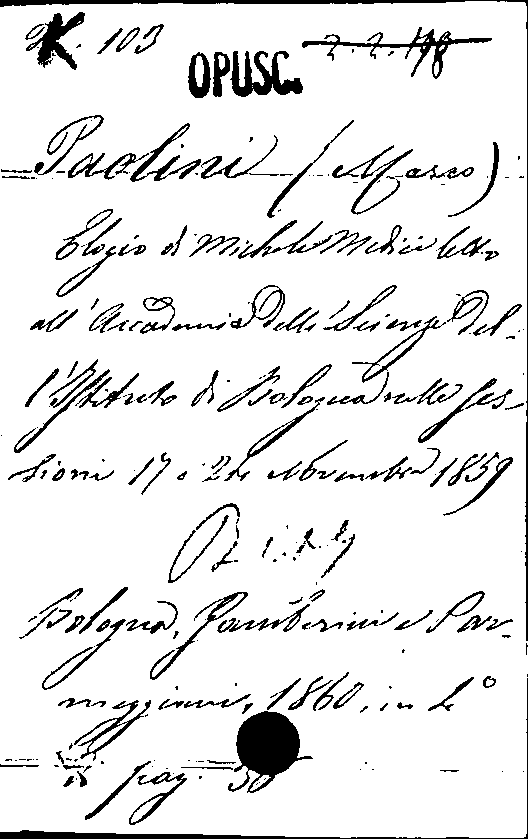 K. 103
2.2.198
OPUSC.
Paolini (Marco)
Elogio di Michele Medici letto
all'Accademia delle Scienze del-
l'Istituto di Bologna nelle ses-
sioni 17 e 24 Novembre 1859
Bologna, Gamberini e Par-
meggiani, 1860, in 4°
pag. 38